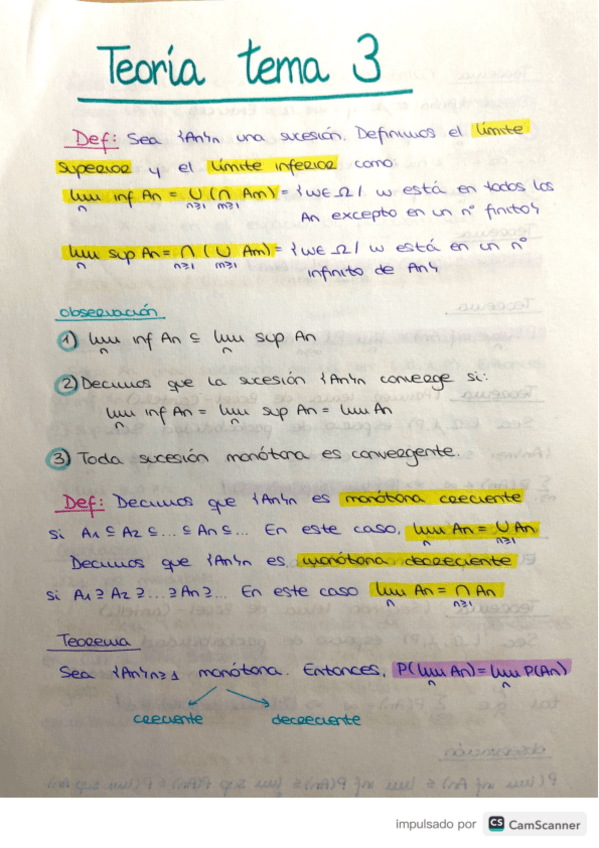 Teoría tema 3
Def: Sea {An}n una sucesión. Definimos el límite
superior y el límite inferior como
lim inf An = ∪ (∩ Am) = {ω ∈ Ω / ω está en todos los
n n≥1 m≥1 An excepto en un nº finito}
lim sup An = ∩ (∪ Am) = {ω ∈ Ω / ω está en un nº
n n≥1 m≥1 infinito de An}
observación
1) lim inf An ⊆ lim sup An
n n
2) Decimos que la sucesión {An}n converge si:
lim inf An = lim sup An = lim An
n n
3) Toda sucesión monótona es convergente.
Def: Decimos que {An}n es monótona creciente
si A1 ⊆ A2 ⊆ ... ⊆ An ⊆ ... En este caso, lim An = ∪ An
n n≥1
Decimos que {An}n es monótona decreciente
si A1 ⊇ A2 ⊇ ... ⊇ An ⊇ ... En este caso lim An = ∩ An
n n≥1
Teorema
Sea {An}n≥1 monótona. Entonces, P(lim An) = lim P(An)
n n
creciente decreciente
impulsado por CS CamScanner